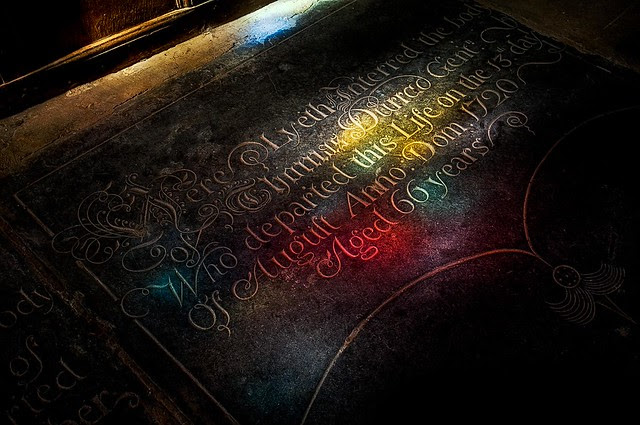 Here Lyeth Interred the
Of Gent
Who departed this Life on the 13 day
Of August Anno Dom 1720
Aged 66 years
ody
of
rted